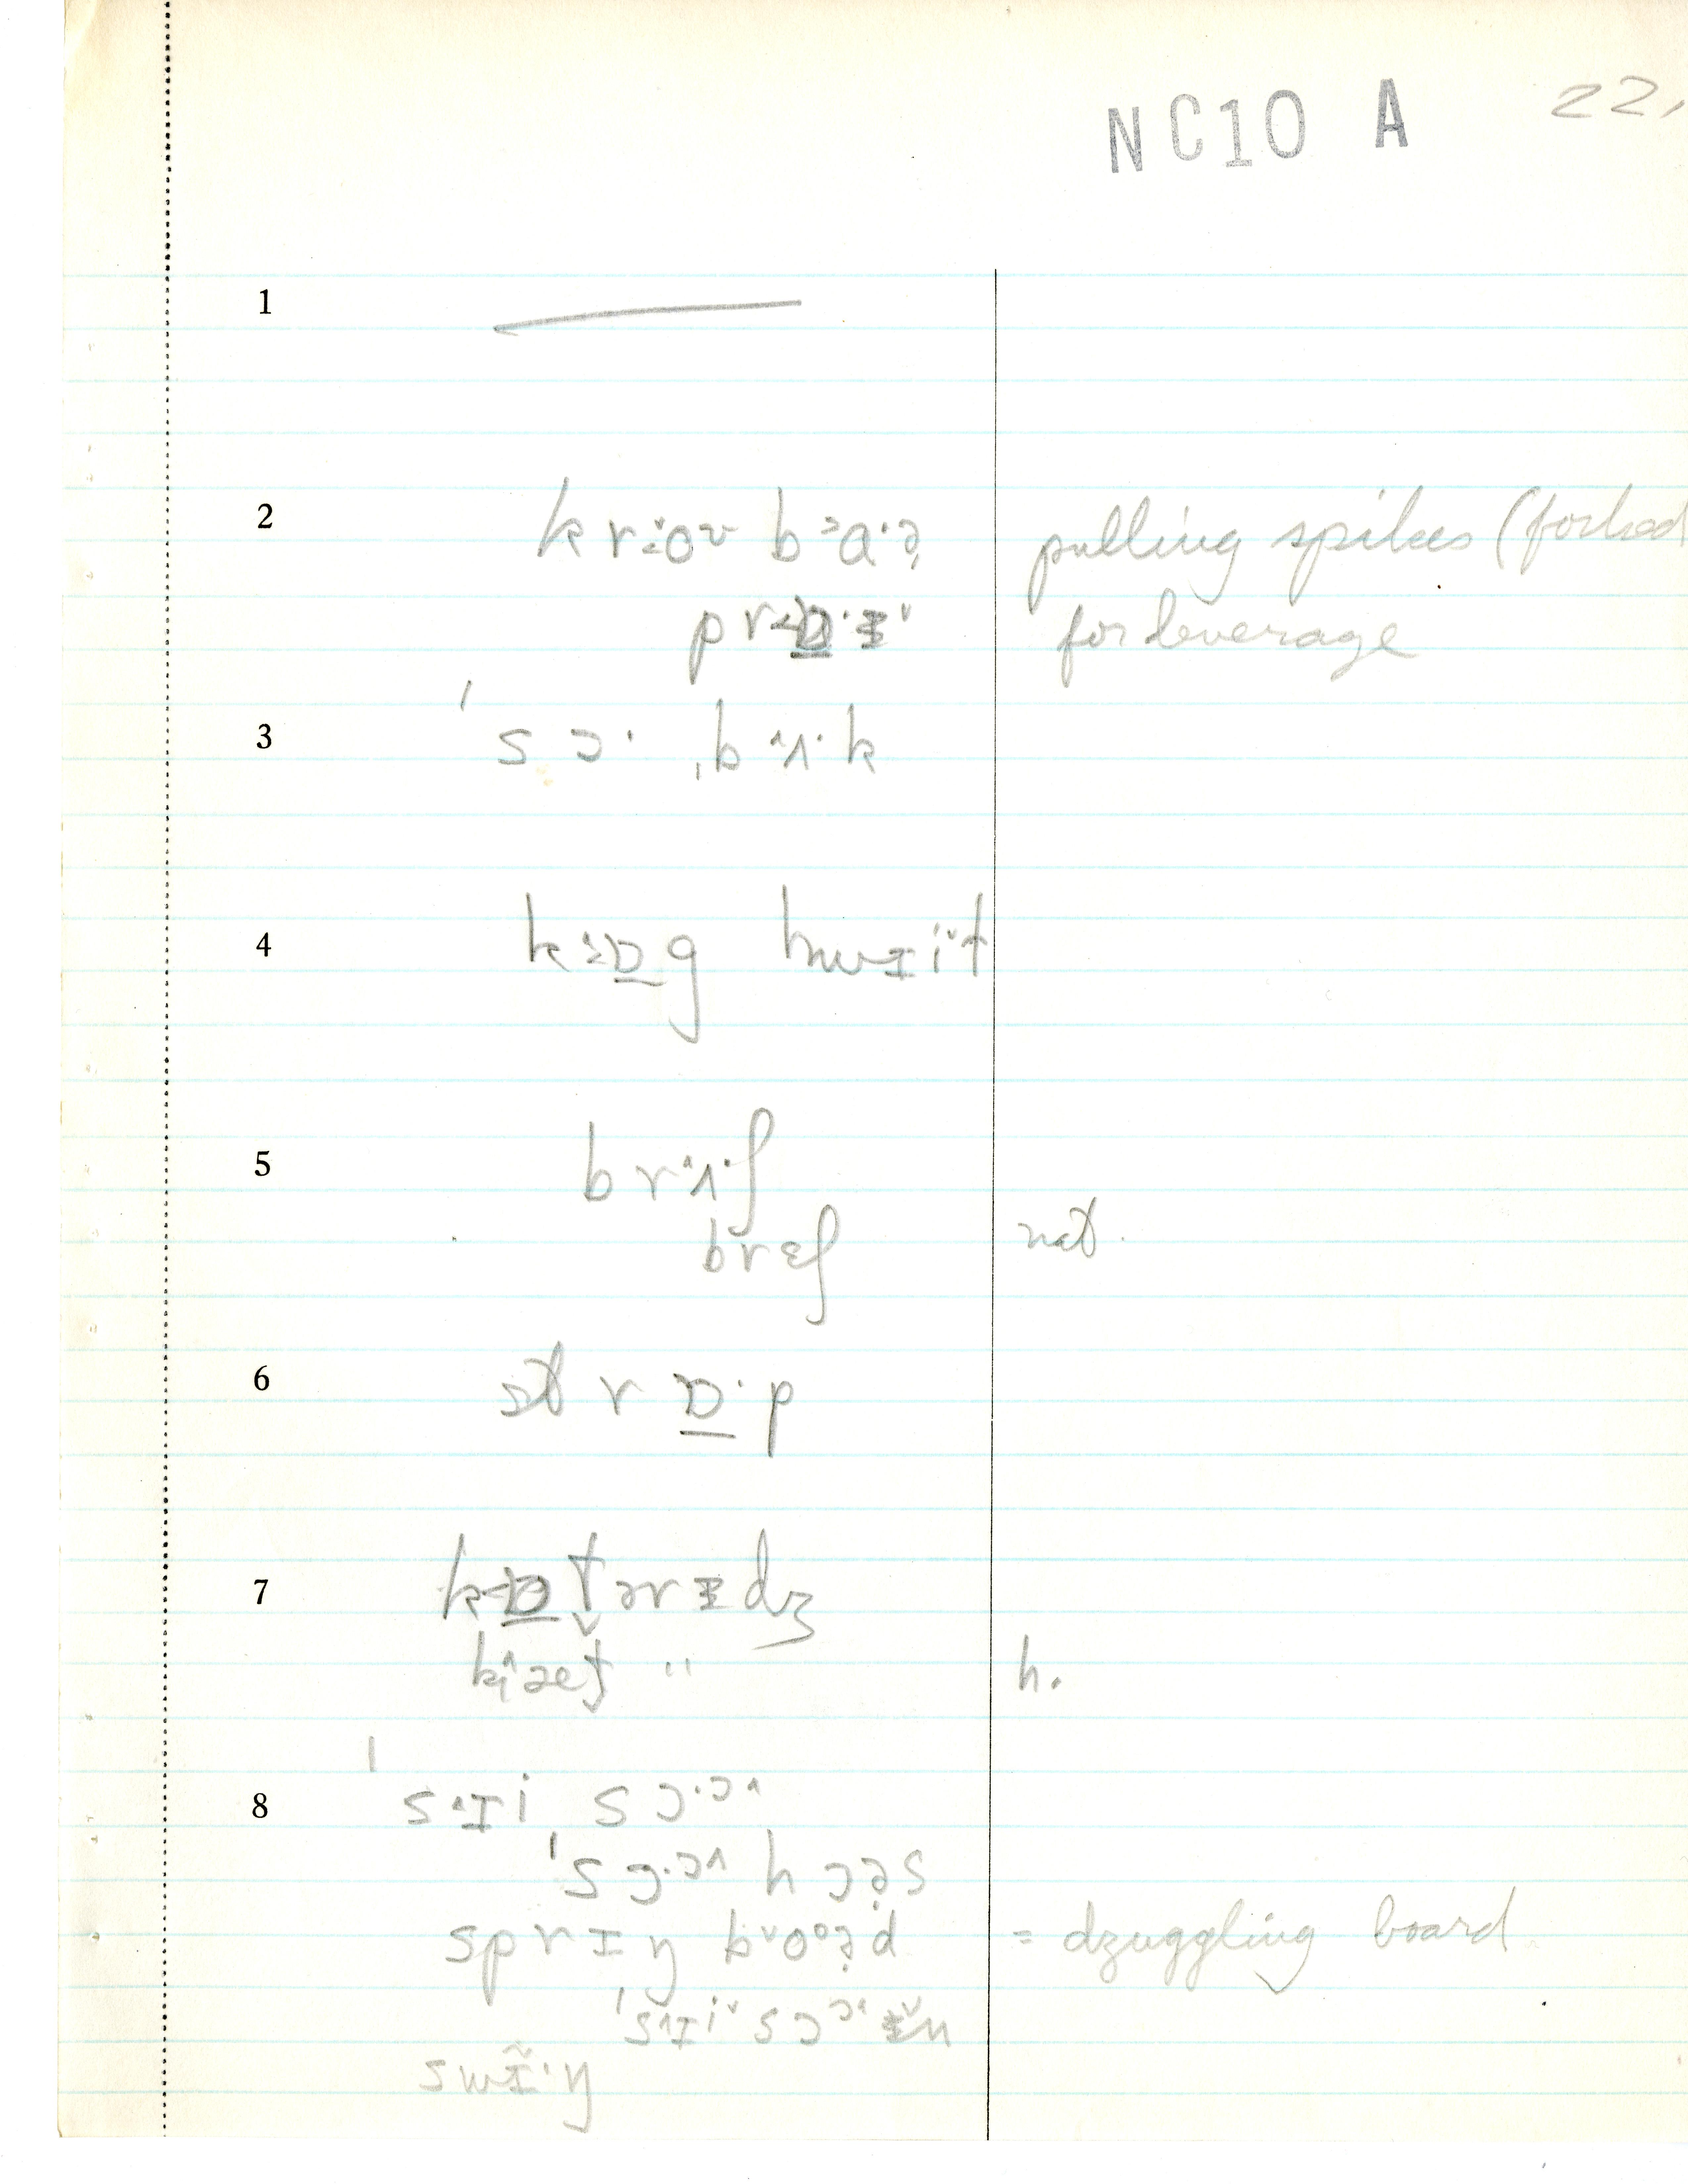 NC10 A 22,
1
2 kr˔o˞ b˃a·ə̣ pulling spikes (forked
for leverage
3 ˈsɔ· ˌbʌ·k
4 hwɪit
5 brʌ·ʃ
brɛʃ not.
6 strɒ̲·p
7 kɒ̲tərɪdʒ
" h.
8 ˈsɪi sɔ·ɔ^
ˈsɔ·ɔ^ hɔə̣s
sprɪŋ b˅oᵒə̣d = dzuggling board
ˈs^ɪi˅sɔɔ^ɪ̵n
swɪ̃·ŋ